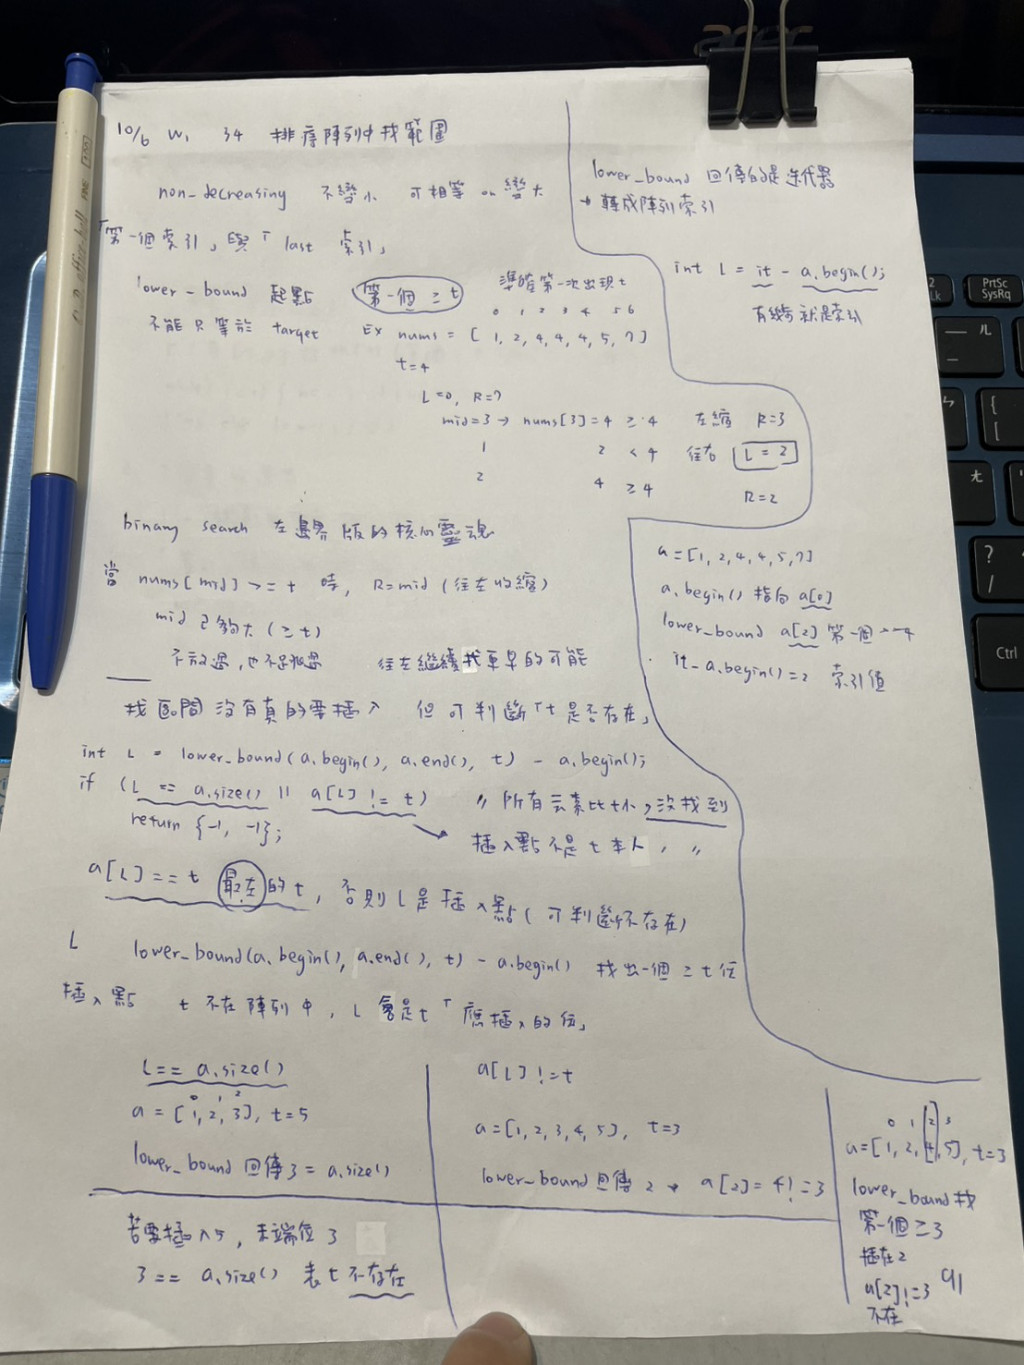 10/6 W1 34 排序陣列中找範圍
non-decreasing 不變小 可相等 or 變大
「第一個索引」與「last 索引」
lower-bound 起點 第一個 ≥ t 準確第一次出現 t
不能只等於 target
0 1 2 3 4 5 6
Ex nums = [ 1, 2, 4, 4, 4, 5, 7]
t=4
L=0, R=7
mid=3 → nums[3]=4 ≥ 4 左縮 R=3
1 2 < 4 往右 L = 2
2 4 ≥4 R=2
binary search 左邊界版的核心靈魂
當 nums[mid] >= t 時, R=mid (往左收縮)
mid 已夠大 (≥t)
往左繼續找更早的可能
找區間沒有真的要插入 但可判斷「t是否存在」
int L = lower_bound(a.begin(), a.end(), t) - a.begin();
if (L == a.size() || a[L] != t) // 所有元素比t小,沒找到
return {-1, -1};
插入點不是 t 本人, //
a[L]==t 最左的t, 否則L是插入點(可判斷不存在)
L lower_bound(a.begin(), a.end(), t) - a.begin() 找出一個 ≥t 位
插入點 t 不在陣列中, L 會是t「應插入的位」
L== a.size()
0 1 2
a = [1, 2, 3], t=5
lower_bound 回傳 3 = a.size()
若要插入5, 末端位 3
3 == a.size() 表 t 不存在
a[L] != t
a=[1, 2, 3, 4, 5], t=3
lower_bound 回傳 2 → a[2]= 4!=3
0 1 2 3
a=[1, 2, 4, 5], t=3
lower_bound 找
第一個≥3
插在2
a[2]!=3
不在
lower_bound 回傳的是迭代器
→ 轉成陣列索引
int L = it - a.begin();
有幾步就是索引
a=[1, 2, 4, 4, 5, 7]
a.begin() 指向 a[0]
lower_bound a[2] 第一個 >=4
it-a.begin()=2 索引值
acer
PrtSc
SysRq
Ctrl